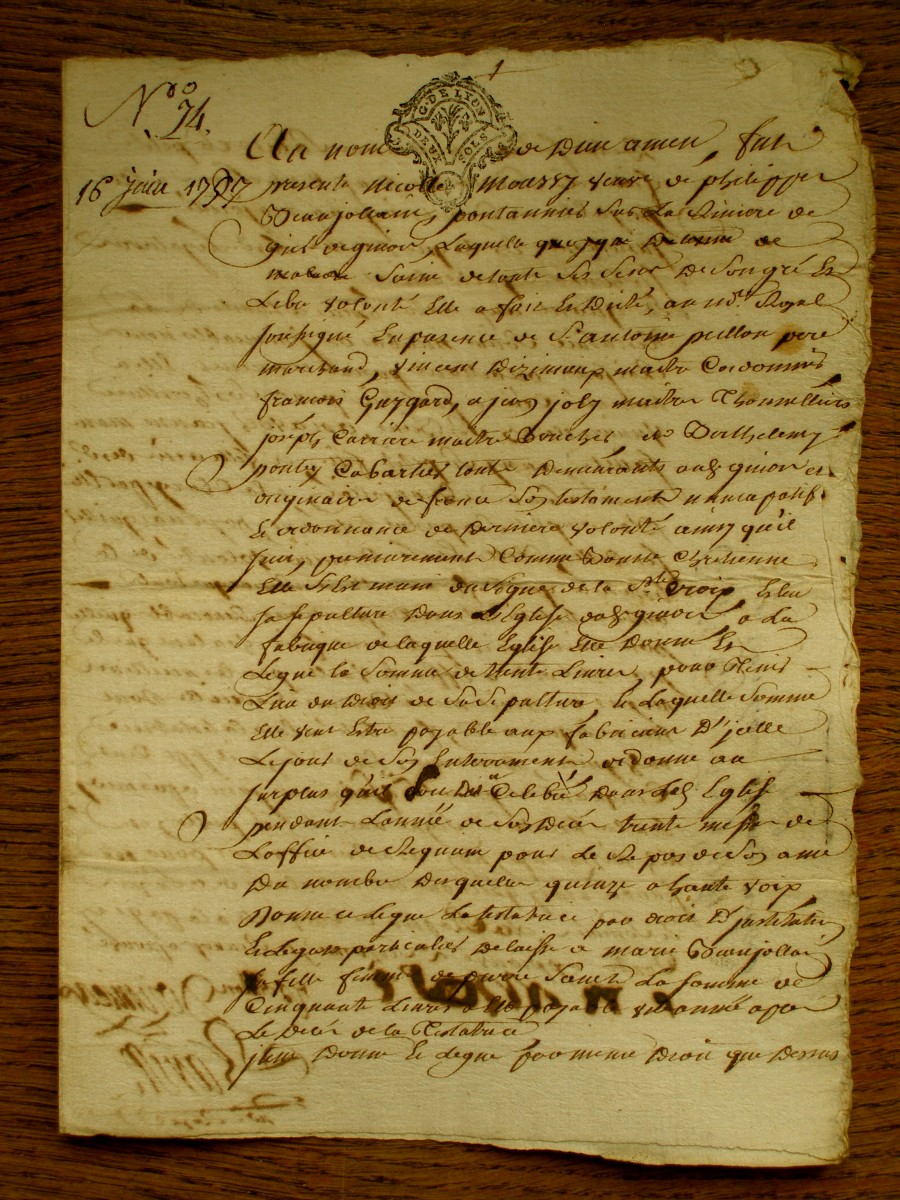 Nro 74.
G. DE LYON
DEUX SOLS
Au nom de Dieu amen, fut
16 juin 17
presente nicolle moussy veuve de philippe
Beaujollain, pontannier sus La Riviere de
giet de givor, Laquelle quoyque de
malade Saine de toute Ses Sens De Son gré Et
Libre volonté Elle a fait Et Dicté, au nre. Royal
soussigné En presence de Sr. antoine pere
marchand, vincent maitre Cordonnier
françois Guygard, a jean joly maitre
joseph Carriere maitre Boucher et Barthelemy
Cabartier toute Demeurants aud. givor et
originaire de Son testament nuncupatif
Et ordonnance de Derniere volonté ainsy qu'il
suit, premierement Comme Bonne Chretienne
Elle S'Est munie du Signe de la Ste. Croix, Elu
sa sepulture Dans L'Eglise dud. givor a La
fabrique de laquelle Eglise Elle Donne Et
Legue la Somme de trente Livres, pour tenir
Lieu du Droit de Sa Sepulture, la Laquelle Somme
Elle veut Estre payable aux fabriciens D'jcelle
Le jour de Son Enterrement, ordonne au
surplus qu'il Soit Dit Celebré Dans Lad. Eglise
pendant L'année de Son Decés trente messes de
L'office de Requiem pour Le Repos de Son ame
Du nombre Desquelles quinze a haute voix
Donne et Legue La testatrice par droit D'jnstitution
Et Legats particulier Delaisse a marie Beaujollain
sa fille femme de pierre La Somme de
Cinquante Livres a Elle payable une année apres
Le Decés de la Testatrice
jtem Donne Et Legue par meme Droit que Dessus